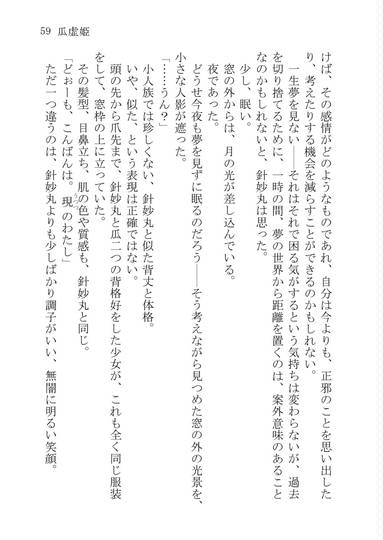 59 瓜虚姫
けば、その感情がどのようなものであれ、自分は今よりも、正邪のことを思い出した
り、考えたりする機会を減らすことができるのかもしれない。
一生夢を見ない――それはそれで困る気がするという気持ちは変わらないが、過去
を切り捨てるために、一時の間、夢の世界から距離を置くのは、案外意味のあること
なのかもしれないと、針妙丸は思った。
少し、眠い。
窓の外からは、月の光が差し込んでいる。
どうせ今夜も夢を見ずに眠るのだろう――そう考えながら見つめた窓の外の光景を、
小さな人影が遮った。
「……うん？」
小人族では珍しくない、針妙丸と似た背丈と体格。
いや、似た、という表現は正確ではない。
頭の先から爪先まで、針妙丸と瓜二つの背格好をした少女が、これも全く同じ服装
をして、窓枠の上に立っていた。
その髪型、目鼻立ち、肌の色や質感も、針妙丸と同じ。
「どぉーも、こんばんは。現のわたし」
ただ一つ違うのは、針妙丸よりも少しばかり調子がいい、無闇に明るい笑顔。